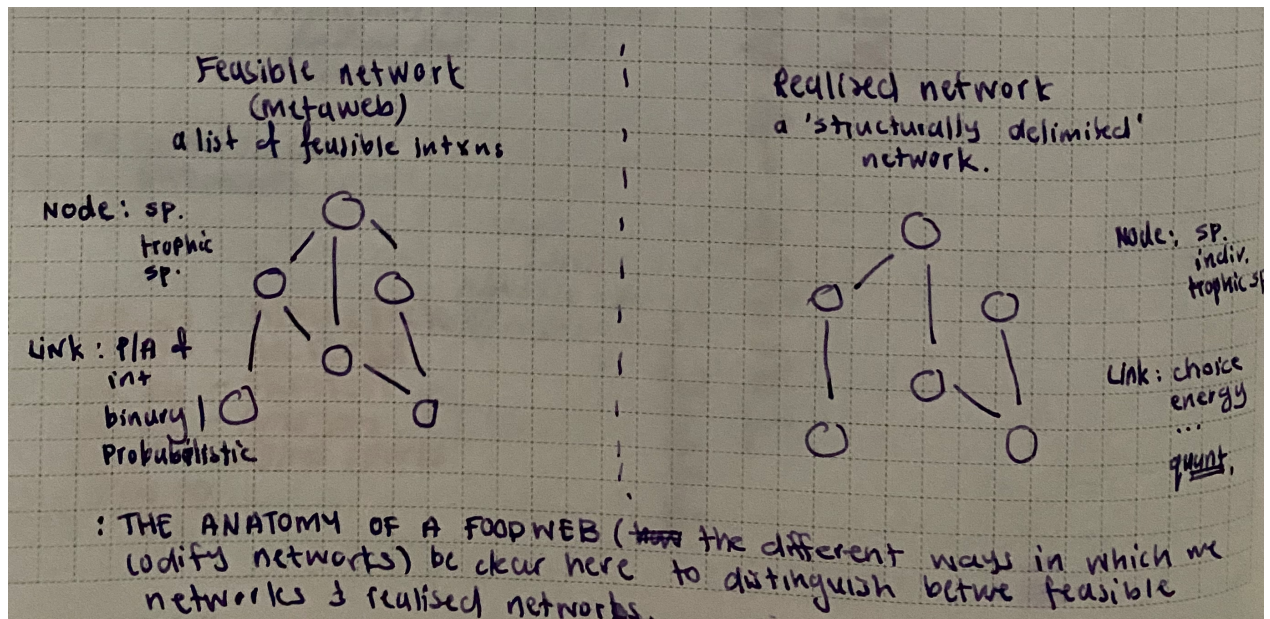 Feasible network
(metaweb)
a list of feasible intxns
Node: sp.
trophic
sp.
Link: P/A of
int
binary |
Probabilistic
Realised network
a 'structurally delimited'
network.
Node: sp.
indiv.
trophic sp
Link: choice
energy
...
quant.
: THE ANATOMY OF A FOODWEB ( the different ways in which we
codify networks) be clear here to distinguish betwe feasible
networks & realised networks.